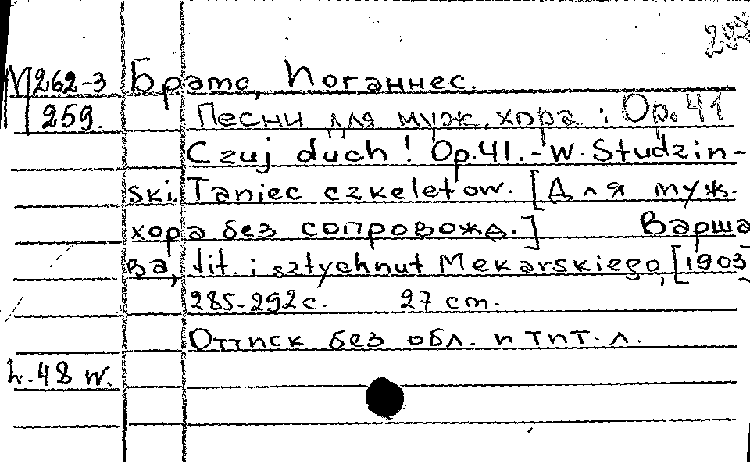 М 262-3 Брамс, Иоганнес.
259. Песни для муж. хора: Op. 41
Czuj duch! Op. 41. - W. Studzin-
ski. Taniec czkeletow. [Для муж.
хора без сопровожд.] Варша
ва, lit. i sztychnut Mekarskiego, [1903
285-292 с. 27 cm.
Оттиск без обл. и тит. л.
h. 48 w.